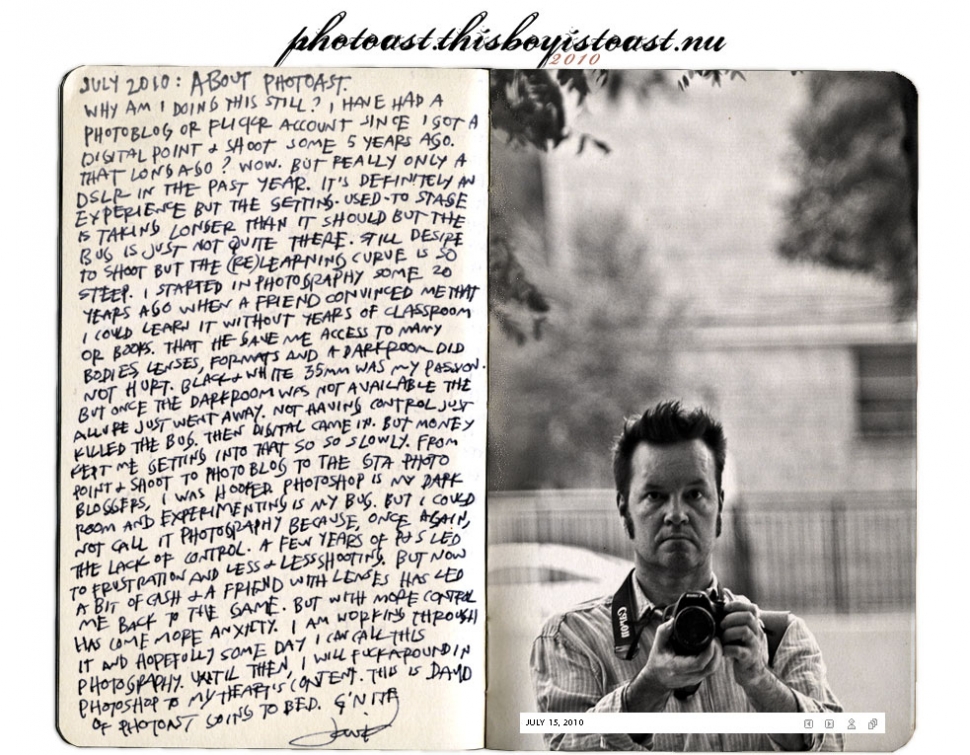 photoast.thisboyistoast.nu
2010
JULY 2010: ABOUT PHOTOAST.
WHY AM I DOING THIS STILL? I HAVE HAD A
PHOTOBLOG OR FLICKR ACCOUNT SINCE I GOT A
DIGITAL POINT & SHOOT SOME 5 YEARS AGO.
THAT LONG AGO? WOW. BUT REALLY ONLY A
DSLR IN THE PAST YEAR. IT'S DEFINITELY AN
EXPERIENCE BUT THE GETTING-USED-TO STAGE
IS TAKING LONGER THAN IT SHOULD BUT THE
BUG IS JUST NOT QUITE THERE. STILL DESIRE
TO SHOOT BUT THE (RE)LEARNING CURVE IS SO
STEEP. I STARTED IN PHOTOGRAPHY SOME 20
YEARS AGO WHEN A FRIEND CONVINCED ME THAT
I COULD LEARN IT WITHOUT YEARS OF CLASSROOM
OR BOOKS. THAT HE GAVE ME ACCESS TO MANY
BODIES, LENSES, FORMATS AND A DARKROOM DID
NOT HURT. BLACK & WHITE 35MM WAS MY PASSION.
BUT ONCE THE DARKROOM WAS NOT AVAILABLE THE
ALLURE JUST WENT AWAY. NOT HAVING CONTROL JUST
KILLED THE BUG. THEN DIGITAL CAME IN. BUT MONEY
KEPT ME GETTING INTO THAT SO SO SLOWLY. FROM
POINT & SHOOT TO PHOTOBLOG TO THE GTA PHOTO
BLOGGERS, I WAS HOOKED. PHOTOSHOP IS MY DARK
ROOM AND EXPERIMENTING IS MY BUG. BUT I COULD
NOT CALL IT PHOTOGRAPHY BECAUSE, ONCE AGAIN,
THE LACK OF CONTROL. A FEW YEARS OF P&S LED
TO FRUSTRATION AND LESS & LESS SHOOTING. BUT NOW
A BIT OF CASH & A FRIEND WITH LENSES HAS LED
ME BACK TO THE GAME. BUT WITH MORE CONTROL
HAS COME MORE ANXIETY. I AM WORKING THROUGH
IT AND HOPEFULLY SOME DAY I CAN CALL THIS
PHOTOGRAPHY. UNTIL THEN, I WILL FUCK AROUND IN
PHOTOSHOP TO MY HEART'S CONTENT. THIS IS DAVID
OF PHOTOAST GOING TO BED. G'NITE
Canon
JULY 15, 2010